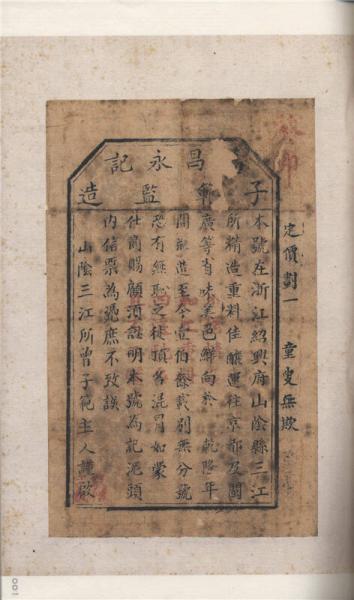 昌永記
子範監造
本號在浙江紹興府山陰縣三江
所精造重料佳釀運往京都及閩
廣等省味美色鮮向於乾隆年
間創造至今壹伯餘載別無分號
恐有無恥之徒頂名混冒如蒙
仕商賜顧須認明本號為記泥頭
內信票為憑庶不致誤
山陰三江所曾子範主人謹啟
定價劃一 童叟無欺
001